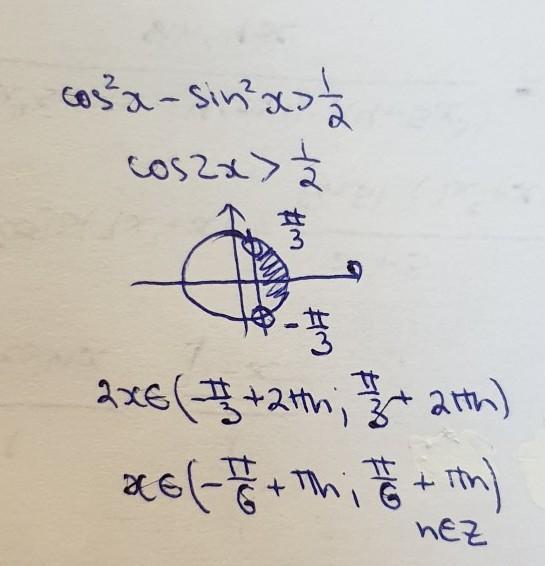 cos²x - sin²x > 1/2
cos2x > 1/2
π/3
-π/3
2x∈(-π/3 + 2πn; π/3 + 2πn)
x∈(-π/6 + πn; π/6 + πn)
n∈Z